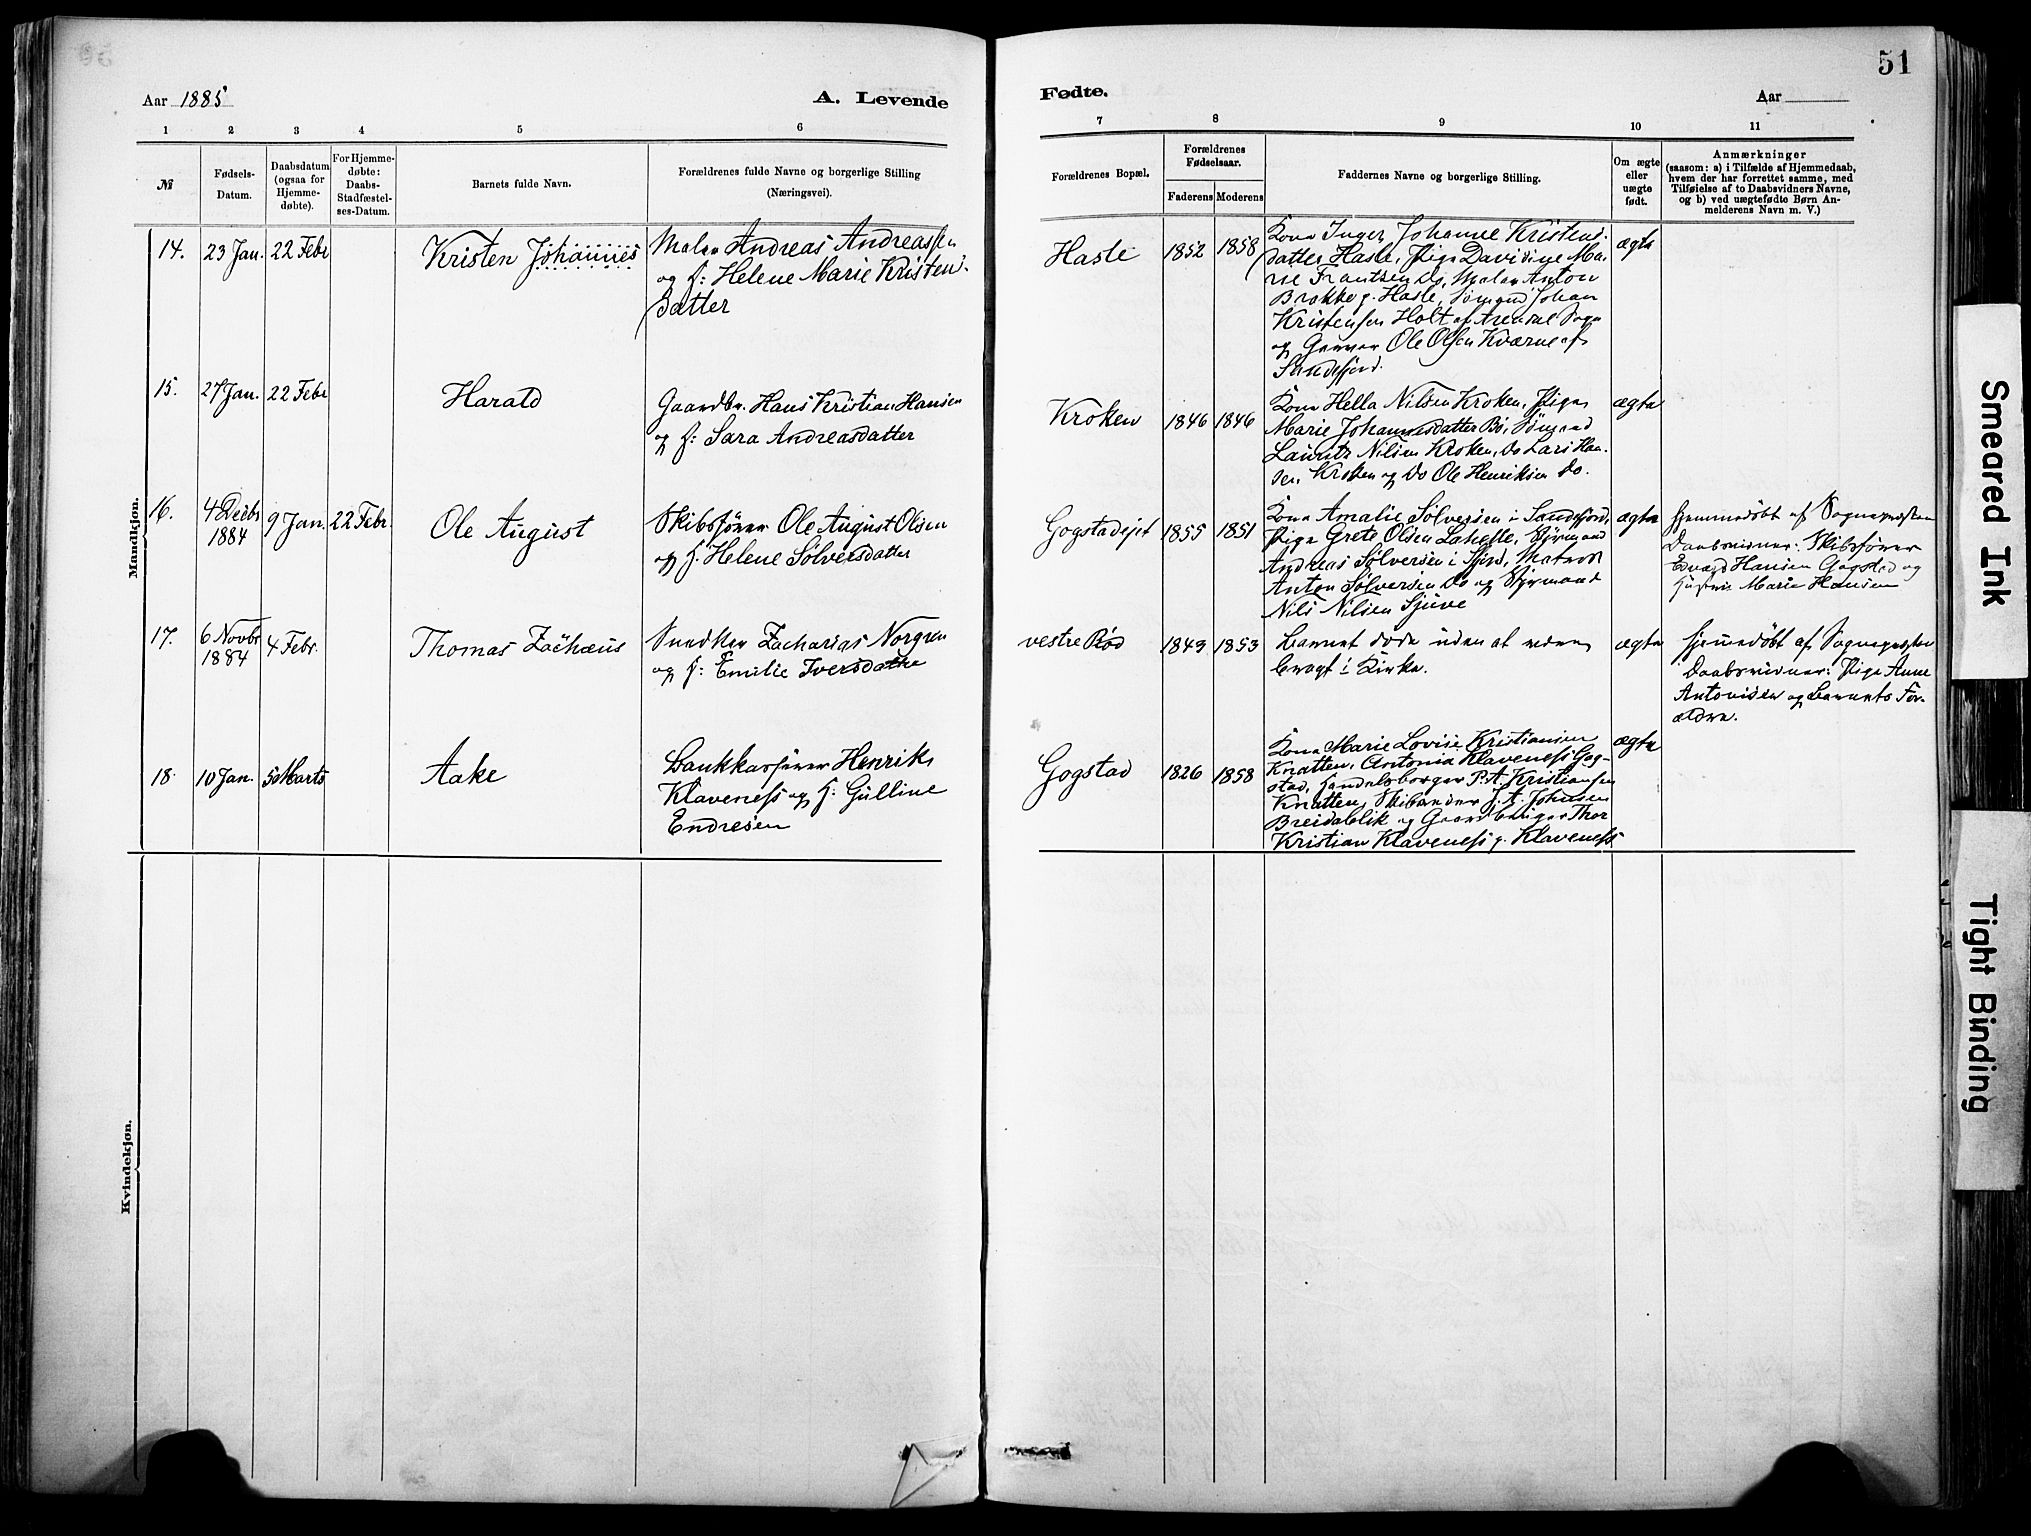 Aar 1885
A. Levende
1 2 3 4 5 6
№
Fødsels-
Datum.
Daabsdatum
(ogsaa for
Hjemme-
døbte).
For Hjemme-
døbte:
Daabs-
Stadfæstel-
ses-Datum.
Barnets fulde Navn.
Forældrenes fulde Navne og borgerlige Stilling
(Næringsvei).
Mandkjøn.
14. 23 Jan. 22 Febr
Kristen Johannes
Maler Andreas Andreassen
og h: Helene Marie Kristens-
datter
15. 27 Jan. 22 Febr
Harald
Gaardbr. Hans Kristian Hansen
og h: Sara Andreasdatter
16. 4 Decbr
1884
9 Jan. 22 Febr.
Ole August
Skibsfører Ole August Olsen
og h: Helene Sølversdatter
17. 6 Novbr
1884
4 Febr.
Thomas Zachæus
Snedker Zacharias Norgren
og h: Emilie Iversdatter
18. 10 Jan. 5 Marts
Aake
Bankkasserer Henrik
Klaveness og h: Gulline
Endresen
Kvindekjøn.
51
Fødte.
Aar
7 8 9 10 11
Forældrenes Bopæl.
Forældrenes
Fødselsaar.
Faderens Moderens
Faddernes Navne og borgerlige Stilling.
Om ægte
eller
uægte
født.
Anmærkninger
(saasom: a) i Tilfælde af Hjemmedaab,
hvem der har forrettet samme, med
Tilføielse af to Daabsvidners Navne,
og b) ved uægtefødte Børn An-
melderens Navn m. V.)
Hasle 1852 1858
Kone Inger Johanne Kristens-
datter Hasle, Pige Davidine Ma-
rie Frantzen Do, Maler Anton
Brække p. Hasle, Sømand Johan
Kristensen Holt af Arendal Sogn
og Garver Ole Olsen Kværne af
Sandefjord.
ægte
Kroken 1846 1846
Kone Hella Nilsen Kroken, Pige
Marie Johannesdatter Bø, Sømand
Lauritz Nilsen Kroken, Do Lars Han-
sen, Kroken og Do Ole Henriksen Do.
ægte
Gogstadejet 1855 1851
Kone Amalie Sølversen i Sandefjord,
Pige Grete Olsen Lahelle, Styrmand
Andreas Sølversen i Sfjord, Matros
Anton Sølversen Do og Styrmand
Nils Nilsen Sjuve
ægte
Hjemmedøbt af Sognepresten
Daabsvidner: Skibsfører
Edvard Hansen Gogstad og
Hustru Marie Hansen
vestre Rød 1843 1853
Barnet døde uden at være
bragt i Kirke.
ægte
Hjemmedøbt af Sognepresten
Daabsvidner: Pige Anne
Antonisen og Barnets For-
ældre.
Gogstad 1826 1858
Kone Marie Lovise Kristiansen
Knatten, Antonia Klaveness Gog-
stad, Handelsborger P. A. Kristiansen
Knatten, Skibsreder J. A. Johnsen
Breidablik og Gaardbruger Thor
Kristian Klaveness p. Klaveness
ægte
Smeared Ink
Tight Binding